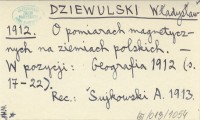 DZIEWULSKI Władysław
1912. O pomiarach magnetycz-
nych na ziemiach polskich. —
W pozycji: Geografia 1912 (s.
17-22).
Rec.: Sujkowski A. 1913.